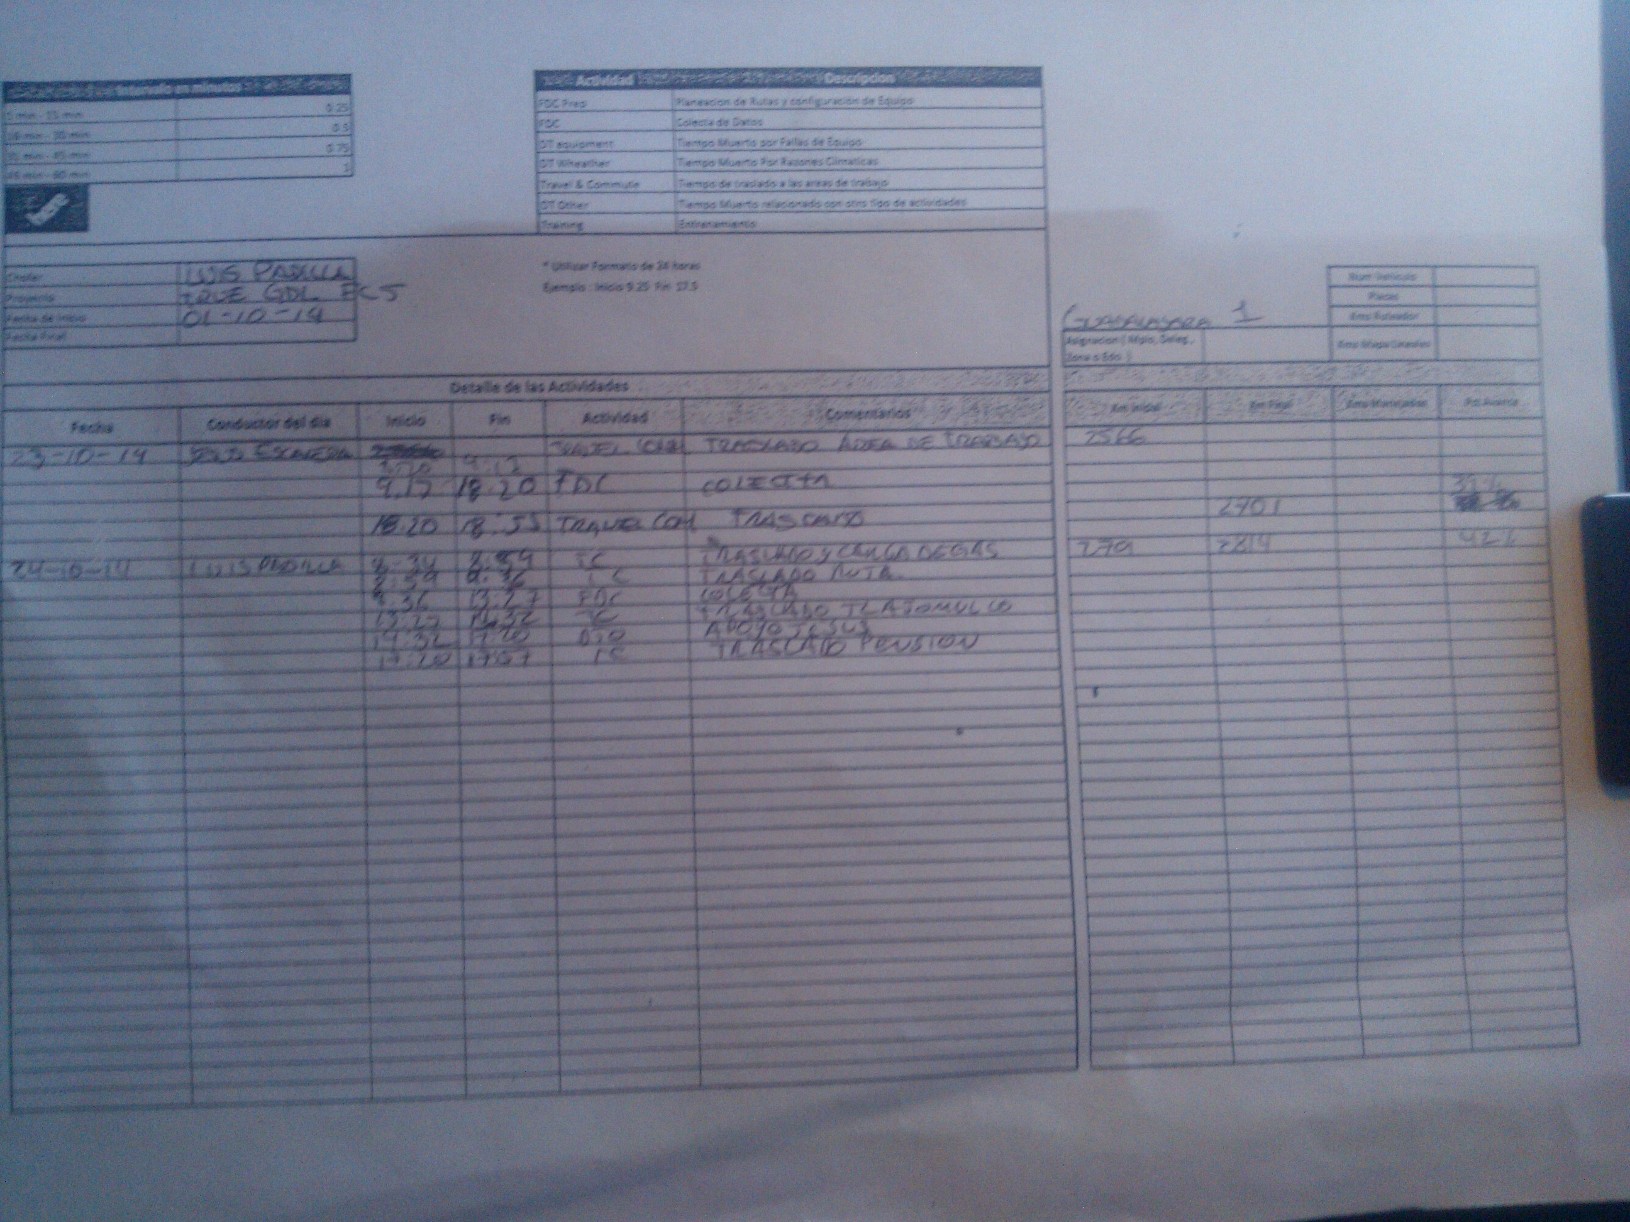 Intervalo en minutos
1 min - 15 min 0.25
16 min - 30 min 0.5
31 min - 45 min 0.75
46 min - 60 min 1
Actividad Descripcion
FDC Prep Planeacion de Rutas y configuración de Equipo
FDC Colecta de Datos
DT equipment Tiempo Muerto por Fallas de Equipo
DT Wheather Tiempo Muerto Por Razones Climaticas
Travel & Commute Tiempo de traslado a las areas de trabajo
DT Other Tiempo Muerto relacionado con otro tipo de actividades
Training Entrenamiento
Chofer LUIS PADILLA
Proyecto TRUE GDL FC5
Fecha de Inicio 01-10-14
Fecha Final
* Utilizar Formato de 24 horas
Ejemplo : Inicio 9.25 Fin 17.5
Num Vehiculo
Placas
Kms Ruteador
GUADALAJARA 1
Asignacion ( Mpio, Deleg.,
Zona o Edo. )
Detalle de las Actividades
Fecha Conductor del dia Inicio Fin Actividad Comentarios Km Inicial Km Final Kms Manejados
23-10-14 TRAVEL COM TRASLADO AREA DE TRABAJO 2566
9.17 18.20 FDC COLECTA
2701
18.20 18.55 TRAVEL COM TRASLADO
24-10-14 LUIS PADILLA 8:34 8:59 TC TRASLADO Y CARGA DE GAS 2701 2814 42%
8:59 9:36 TC TRASLADO RUTA
9:36 13:27 FDC COLECTA
13:27 14:32 TC TRASLADO TLAJOMULCO
14:32 17:20 DTO APOYO JESUS
17:20 TC TRASLADO PENSION